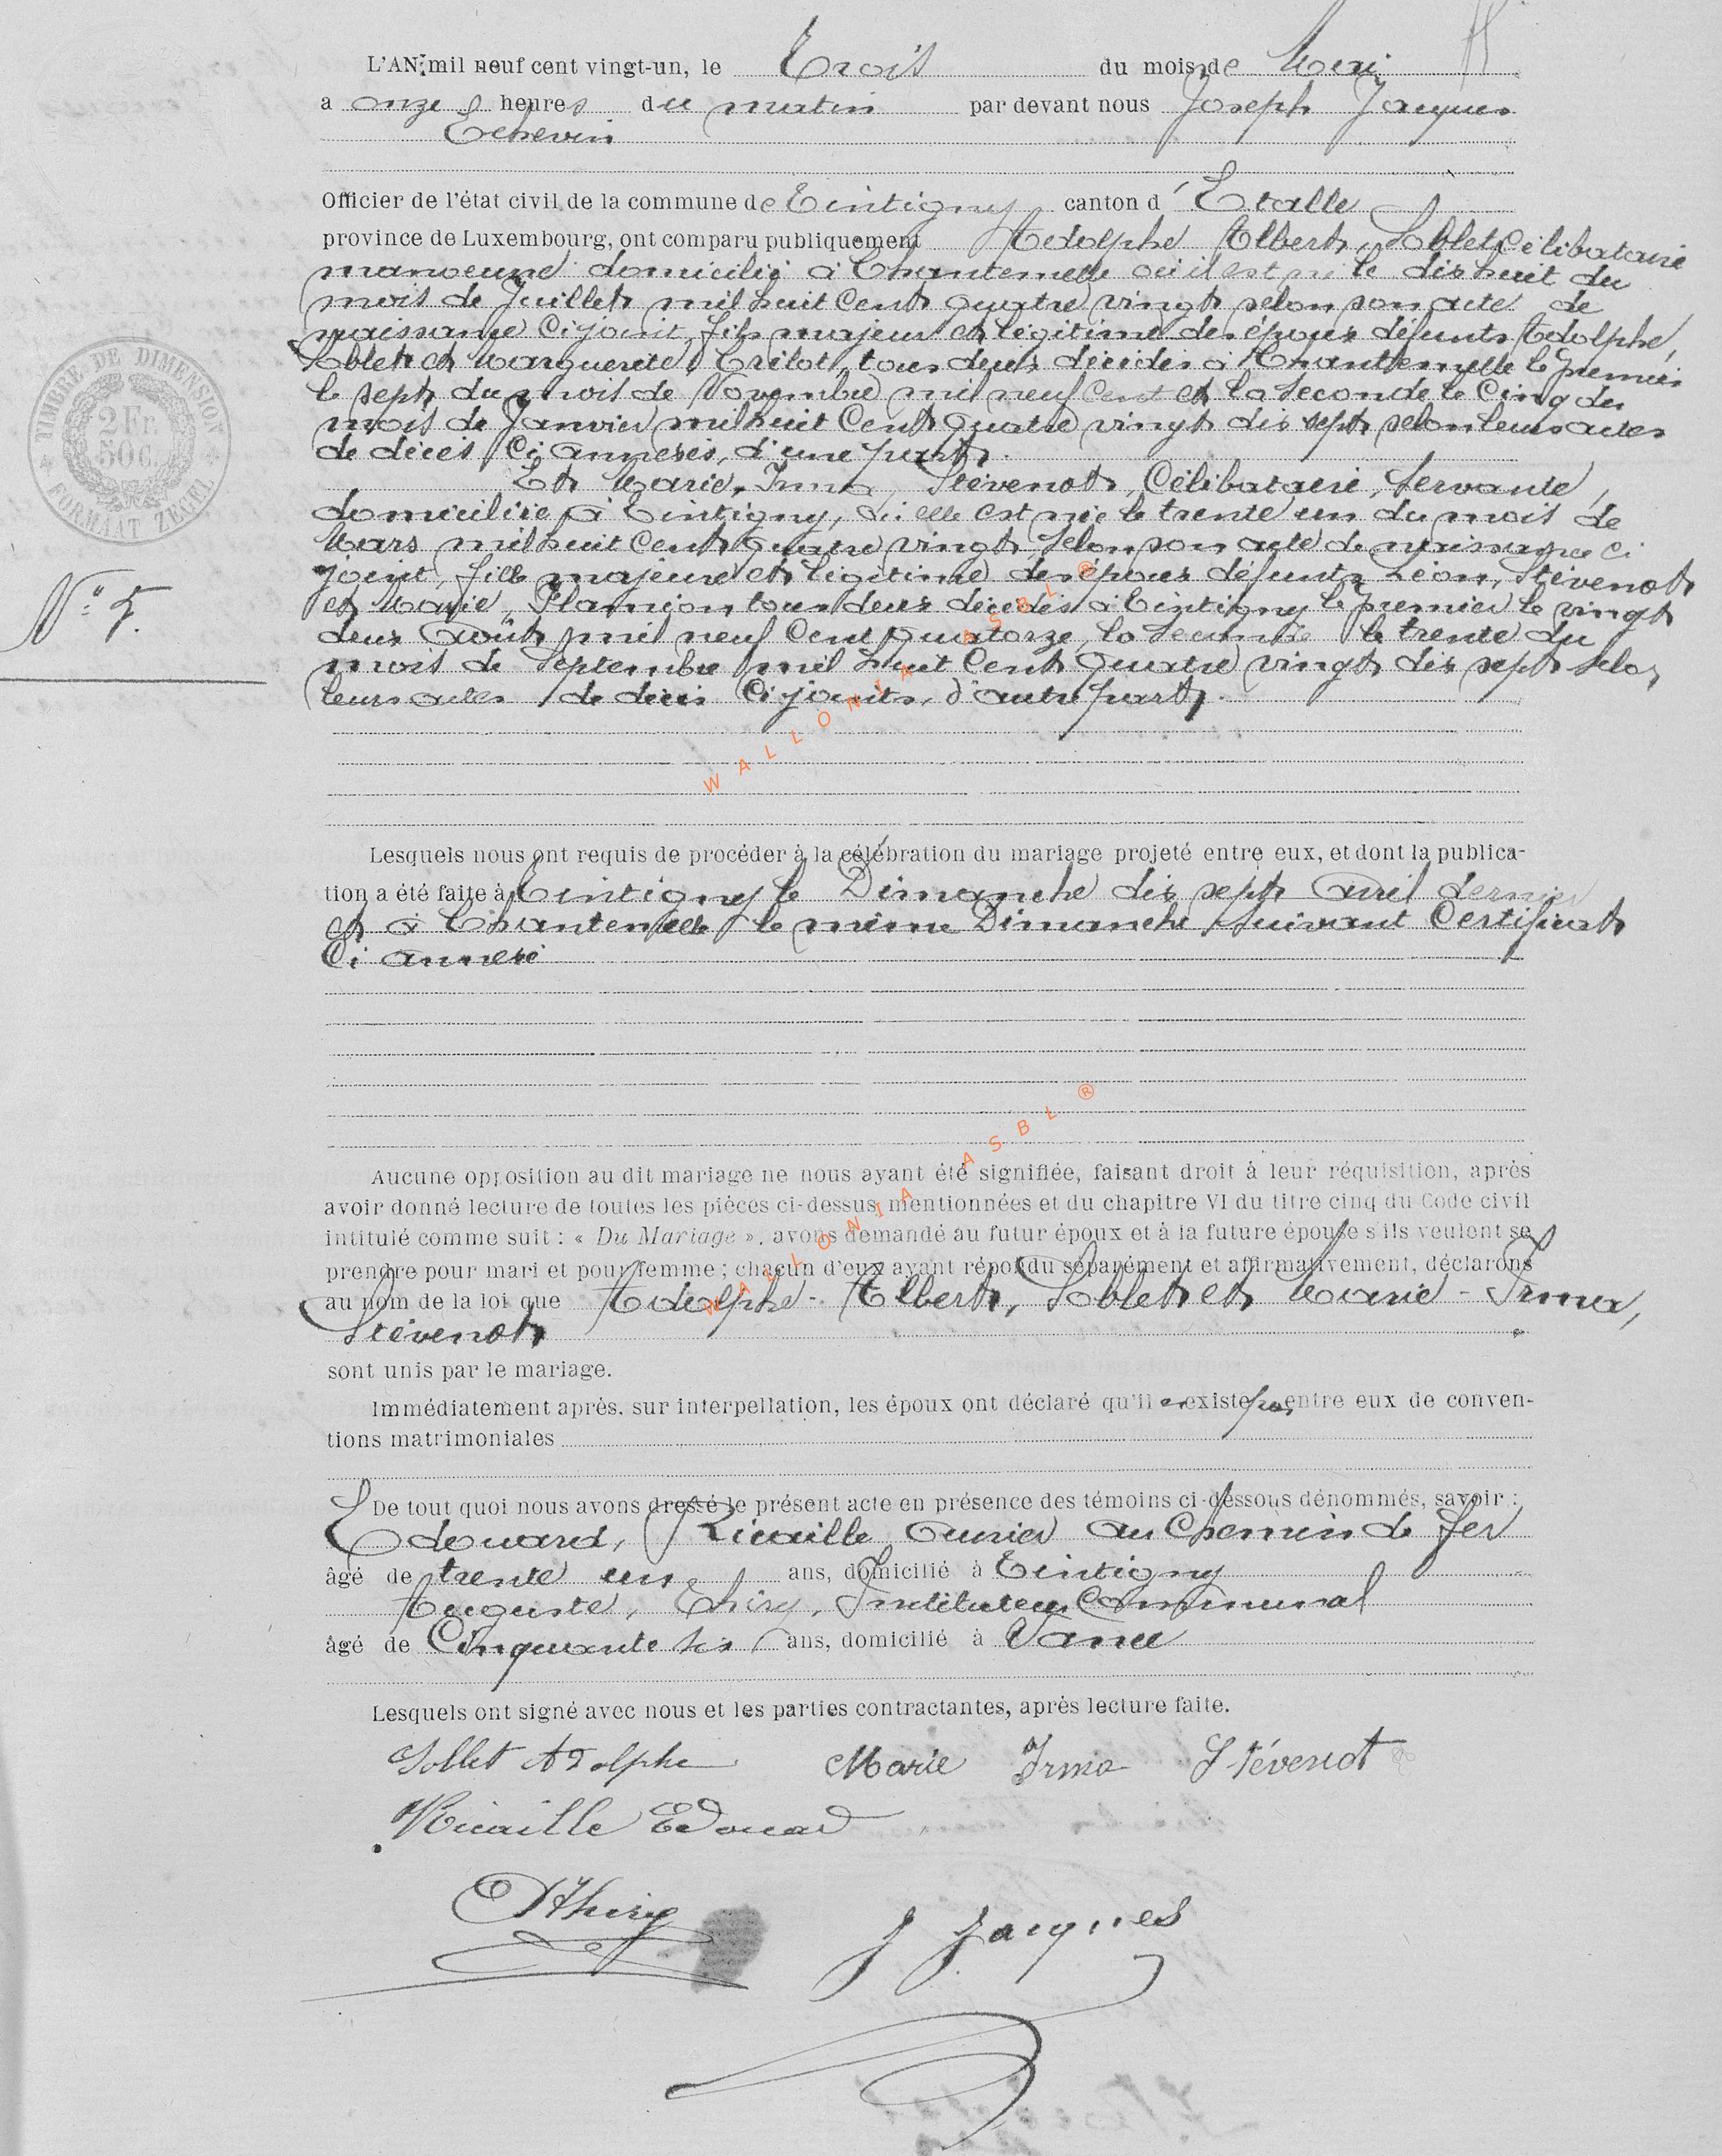 L'AN mil neuf cent vingt-un, le Trois du mois de Mai
a onze heures du matin par devant nous Joseph Jacques
Echevin
Officier de l'état civil de la commune de Tintigny canton d'Etalle
province de Luxembourg, ont comparu publiquement Adolphe Albert, Soblet Célibataire
manoeuvre domicilié à Chantemelle où il est né le dix huit du
mois de Juillet mil huit Cent quatre vingt selon son acte de
naissance Ci joint, fils majeur et légitime des époux défunts Adolphe,
Soblet et Marguerite, Trélot, tous deux décédés à Chantemelle le premier
le sept du mois de Novembre mil neuf Cent et la seconde le Cinq du
mois de Janvier mil huit Cent quatre vingt dix sept selon leurs actes
de décès Ci annexés, d'une part.
Et Marie, Irma, Stévenot, Célibataire, Servante,
domiciliée à Tintigny, où elle est née le trente un du mois de
Mars mil huit Cent quatre vingt, selon son acte de naissance Ci
joint, fille majeure et légitime des époux défunts Léon, Stévenot
et Marie, Plamion tous deux décédés à Tintigny le premier le vingt
deux Août mil neuf Cent quatorze, la seconde le trente du
mois de Septembre mil huit Cent quatre vingt dix sept selon
leurs actes de décès Ci joints, d'autre part.
N° 5.
TIMBRE DE DIMENSION
2 Fr.
50 c.
FORMAAT ZEGEL
WALLONIA ASBL ®
Lesquels nous ont requis de procéder à la célébration du mariage projeté entre eux, et dont la publica-
tion a été faite à Tintigny le Dimanche dix sept avril dernier
et à Chantemelle le même Dimanche suivant Certificat
Ci annexé
WALLONIA ASBL ®
Aucune opposition au dit mariage ne nous ayant été signifiée, faisant droit à leur réquisition, après
avoir donné lecture de toutes les pièces ci-dessus mentionnées et du chapitre VI du titre cinq du Code civil
intitulé comme suit : « Du Mariage », avons demandé au futur époux et à la future épouse s'ils veulent se
prendre pour mari et pour femme ; chacun d'eux ayant répondu séparément et affirmativement, déclarons
au nom de la loi que Adolphe - Albert, Soblet et Marie - Irma,
Stévenot
sont unis par le mariage.
Immédiatement après, sur interpellation, les époux ont déclaré qu'il n'existe pas entre eux de conven-
tions matrimoniales
De tout quoi nous avons dressé le présent acte en présence des témoins ci-dessous dénommés, savoir :
Edouard, Ricaille Ouvrier au Chemin de fer
âgé de trente un ans, domicilié à Tintigny
Auguste, Thiry, Instituteur Communal
âgé de Cinquante six ans, domicilié à
Lesquels ont signé avec nous et les parties contractantes, après lecture faite.
Soblet Adolphe Marie Irma Stévenot
Ricaille Edouard
AThiry
J Jacques